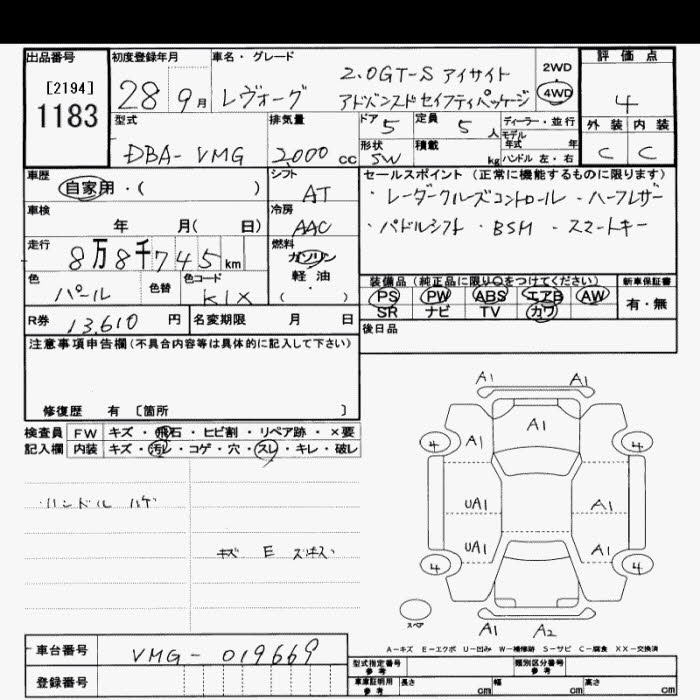 出品番号 初度登録年月 車名・グレード 評価点
[2194] 2.0GT-S アイサイト 2WD
1183 28 9月 レヴォーグ アドバンスドセイフティパッケージ 4WD 4
型式 排気量 ドア 5 定員 5 人 ディーラー・並行 外装 内装
モデル
DBA-VMG 2,000 cc 形状 SW 積載 kg 年式 年 C C
ハンドル 左・右
車歴 シフト セールスポイント (正常に機能するものに限ります)
自家用・( ) AT ・レーダークルーズコントロール ・ハーフレザー
車検 冷房 ・パドルシフト ・BSM ・スマートキー
年 月( 日) AAC
走行 燃料
8万8千745km ガソリン
軽油
( )
色 色替 色コード 装備品 (純正品に限り○をつけてください) 新車保証書
パール K1X PS PW ABS エアB AW 有・無
SR ナビ TV カワ
R券 13,610 円 名変期限 月 日 後日品
注意事項申告欄(不具合内容等は具体的に記入して下さい)
修復歴 有 〔箇所 〕
検査員 FW キズ・飛石・ヒビ割・リペア跡・×要
記入欄 内装 キズ・汚レ・コゲ・穴・スレ・キレ・破レ
ハンドル ハゲ
A1 A1
A1
4 A1 4
UA1 A1
UA1 A1
4 4
スペア
A1 A2
A-キズ E-エクボ U-凹み W-補修跡 S-サビ C-腐食 XX-交換済
車台番号 VMG-019669
登録番号
型式指定番号 参考 類別区分番号 参考
車庫証明用 参考 長さ cm 幅 cm 高さ cm